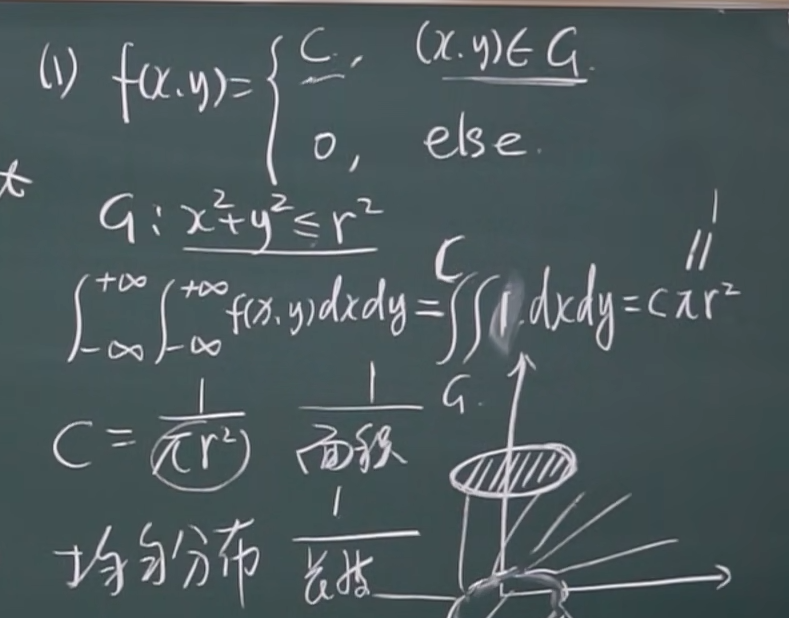 (1) f(x,y)={ C, (x,y)∈G.
0, else.
t
G: x²+y²≤r²
∫_{-∞}^{+∞}∫_{-∞}^{+∞} f(x,y)dxdy = C∬_G 1.dxdy = cπr² = 1
C = 1/(πr²) 1/面积
均匀分布 1/长度